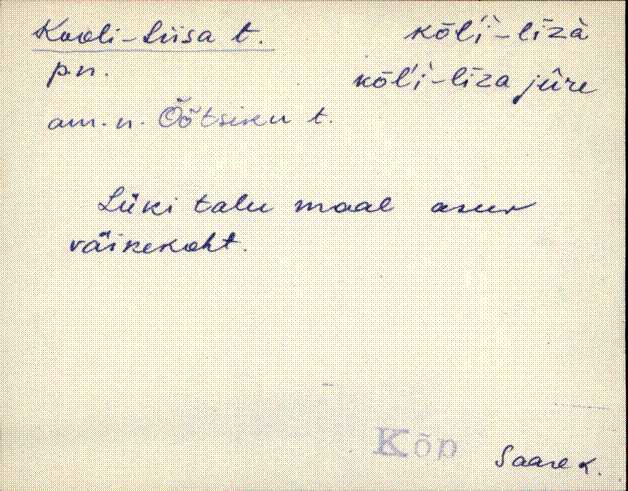 Kooli-Liisa t. kōĺi-līzà
p.n. kōĺi-līza jūre
am.n. Õõtsiku t.
Lüki talu maal asuv
väikekoht.
Kõp Saare k.